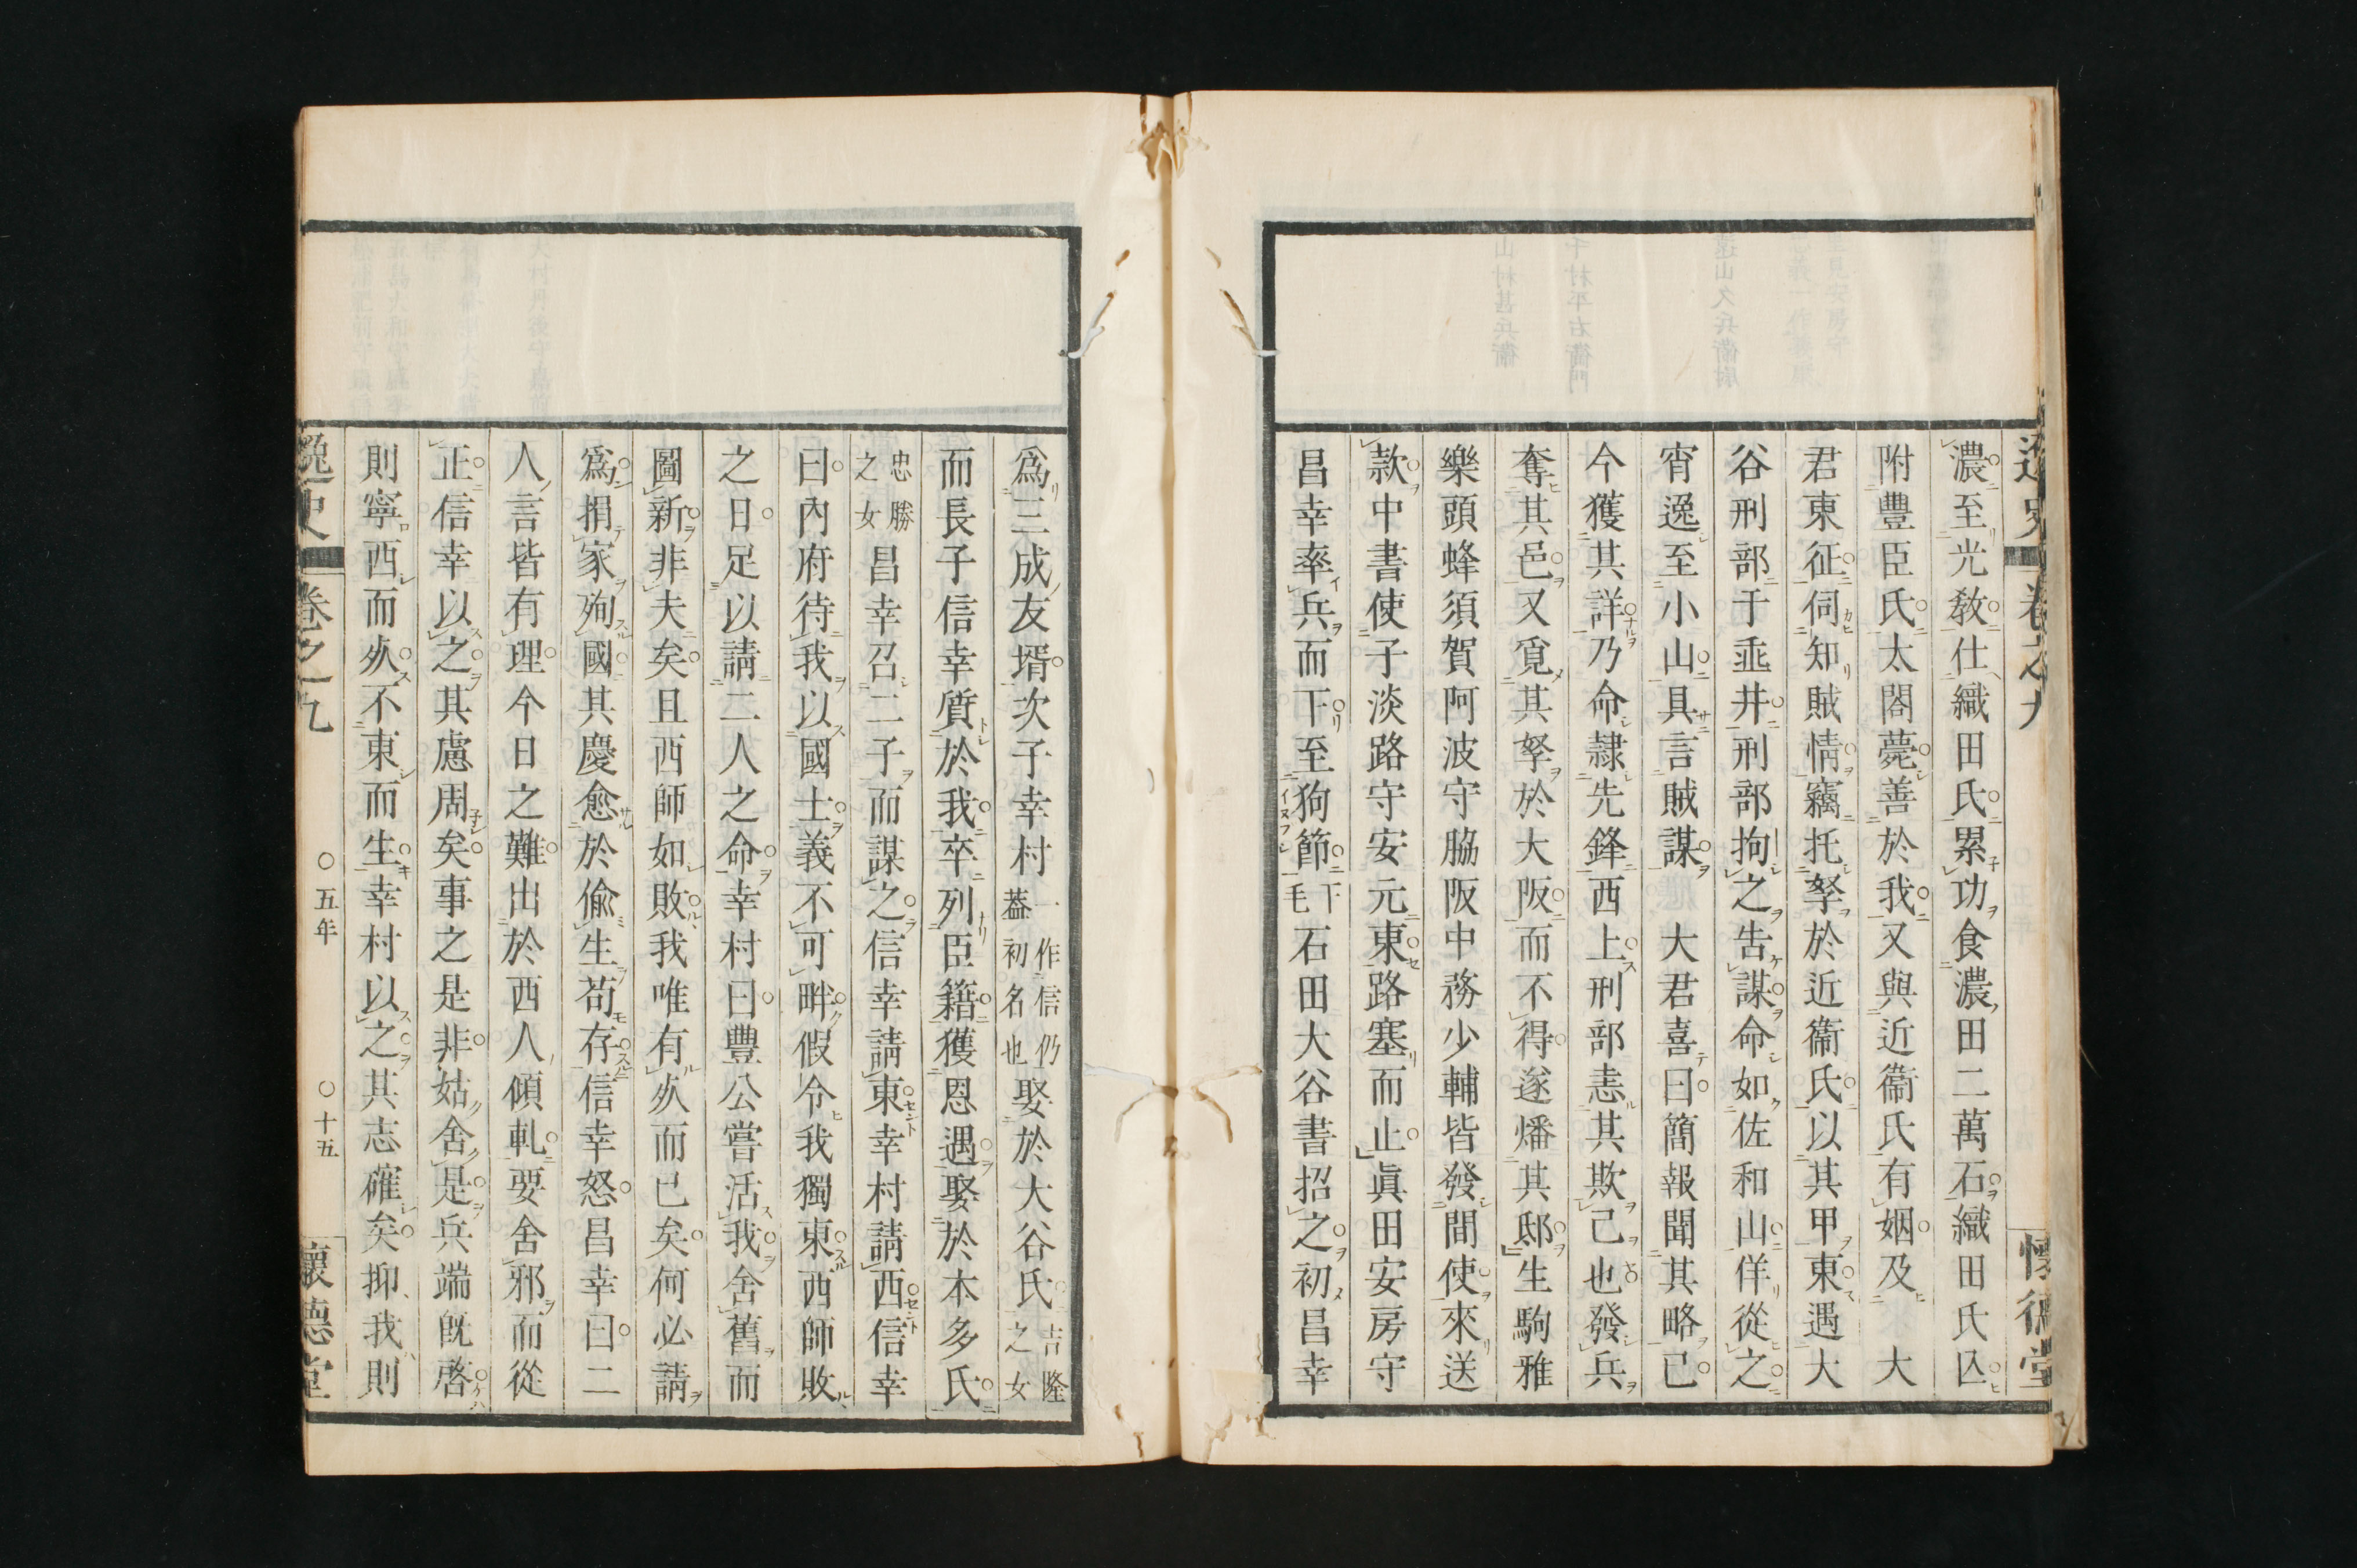 逸史 卷之九 懷德堂
濃至光敎仕織田氏累功食濃田二萬石織田氏亾
附豐臣氏太閤薨善於我又與近衞氏有姻及 大
君東征伺知賊情竊托孥於近衞氏以其甲東遇大
谷刑部于垂井刑部拘之告謀命如佐和山佯從之
宵逸至小山具言賊謀 大君喜曰簡報聞其略已
今獲其詳乃命隷先鋒西上刑部恚其欺己也發兵
奪其邑又覓其孥於大阪而不得遂燔其邸生駒雅
樂頭蜂須賀阿波守脇阪中務少輔皆發間使來送
款中書使子淡路守安元東路塞而止眞田安房守
昌幸率兵而下至狗節下毛石田大谷書招之初昌幸
爲三成友壻次子幸村一作信仍蓋初名也娶於大谷氏吉隆之女
而長子信幸質於我卒列臣籍獲恩遇娶於本多氏
忠勝之女昌幸召二子而謀之信幸請東幸村請西信幸
曰內府待我以國士義不可畔假令我獨東西師敗
之日足以請二人之命幸村曰豐公嘗活我舍舊而
圖新非夫矣且西師如敗我唯有死而已矣何必請
爲捐家殉國其慶愈於偸生苟存信幸怒昌幸曰二
人言皆有理今日之難出於西人傾軋要舍邪而從
正信幸以之其慮周矣事之是非姑舍是兵端旣啓
則寧西而死不東而生幸村以之其志確矣抑我則
逸史 卷之九 ○五年 ○十五 懷德堂